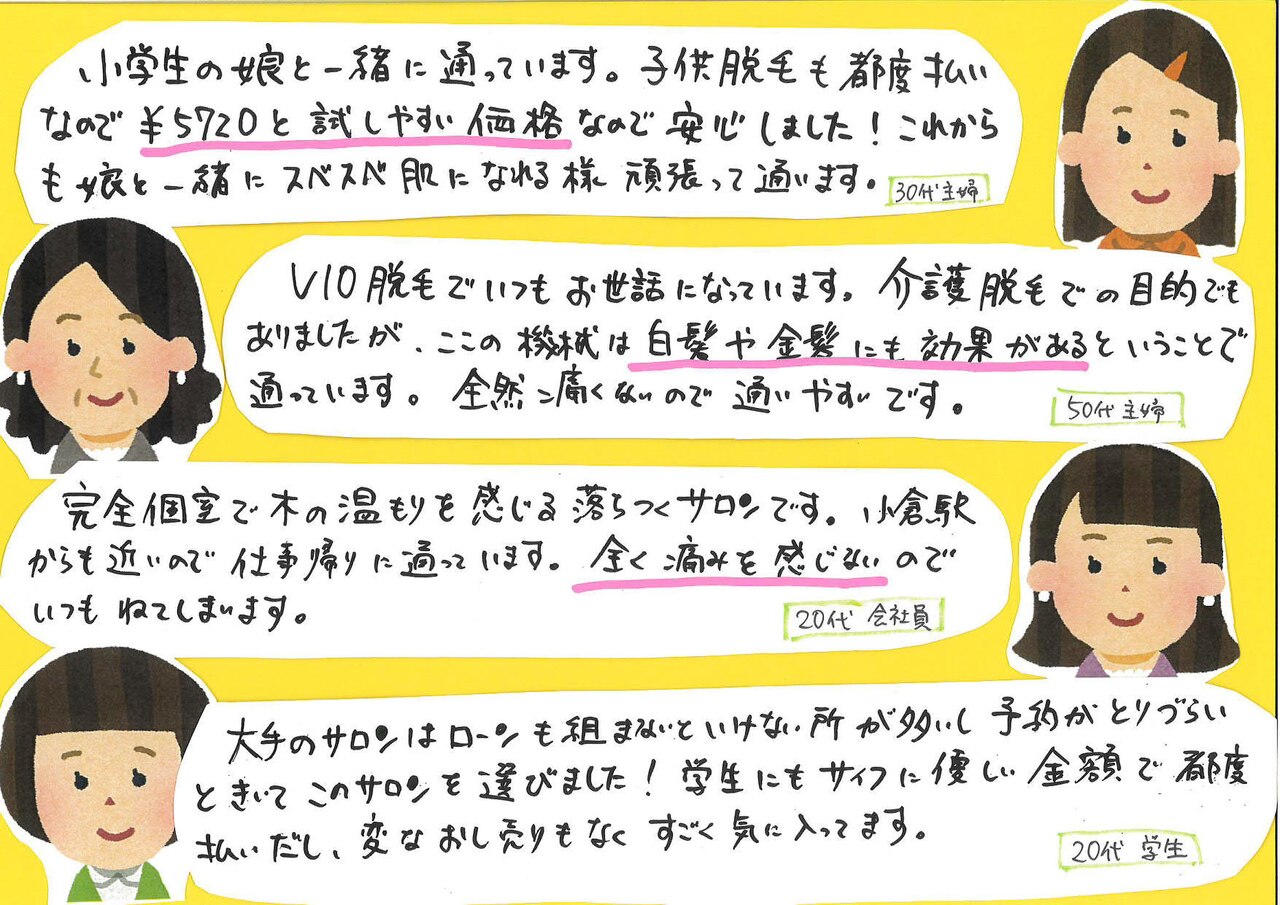 小学生の娘と一緒に通っています。子供脱毛も都度払い
なので¥5720と試しやすい価格なので安心しました！これから
も娘と一緒にスベスベ肌になれる様頑張って通います。
30代主婦
VIO脱毛でいつもお世話になっています。介護脱毛での目的でも
ありましたが、ここの機械は白髪や金髪にも効果があるということで
通っています。全然痛くないので通いやすいです。
50代主婦
完全個室で木の温もりを感じる落ちつくサロンです。小倉駅
からも近いので仕事帰りに通っています。全く痛みを感じないので
いつもねてしまいます。
20代 会社員
大手のサロンはローンも組まないといけない所が多いし予約がとりづらい
ときいてこのサロンを選びました！学生にもサイフに優しい金額で都度
払いだし、変なおし売りもなくすごく気に入ってます。
20代 学生